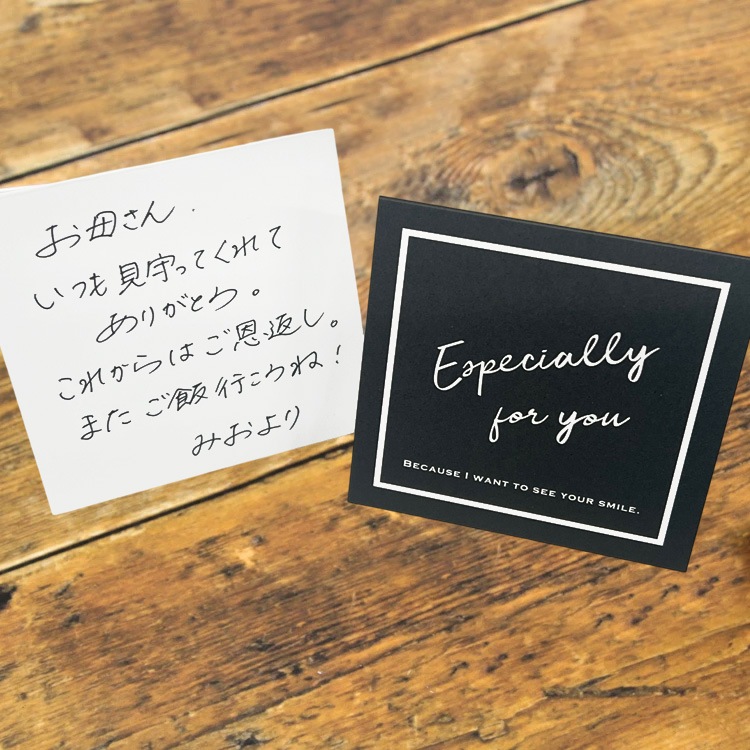 お母さん.
いつも見守ってくれて
ありがとう。
これからはご恩返し。
またご飯行こうね!
みおより
Especially
for you
BECAUSE I WANT TO SEE YOUR SMILE.